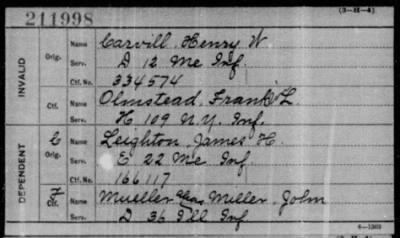 (3-H-4)
211998
INVALID
Orig.
Name Carvill, Henry W.
Serv. D 12 Me Inf.
Ctf. No. 334574
Ctf.
Name Olmstead, Frank L.
Serv. H 109 N.Y. Inf.
DEPENDENT
C
Orig.
Name Leighton, James H.
Serv. E 22 Me Inf.
Ctf. No. 166117
Ctf.
Name Mueller alias Miller, John
Serv. D 36 Ill Inf